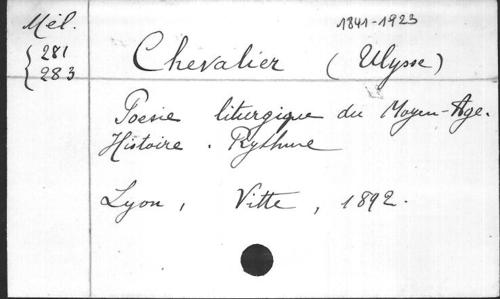 Mél.
281
283
1841-1923
Chevalier (Ulysse)
Poésie liturgique du Moyen-Age.
Histoire. Rythme
Lyon, Vitte, 1892.